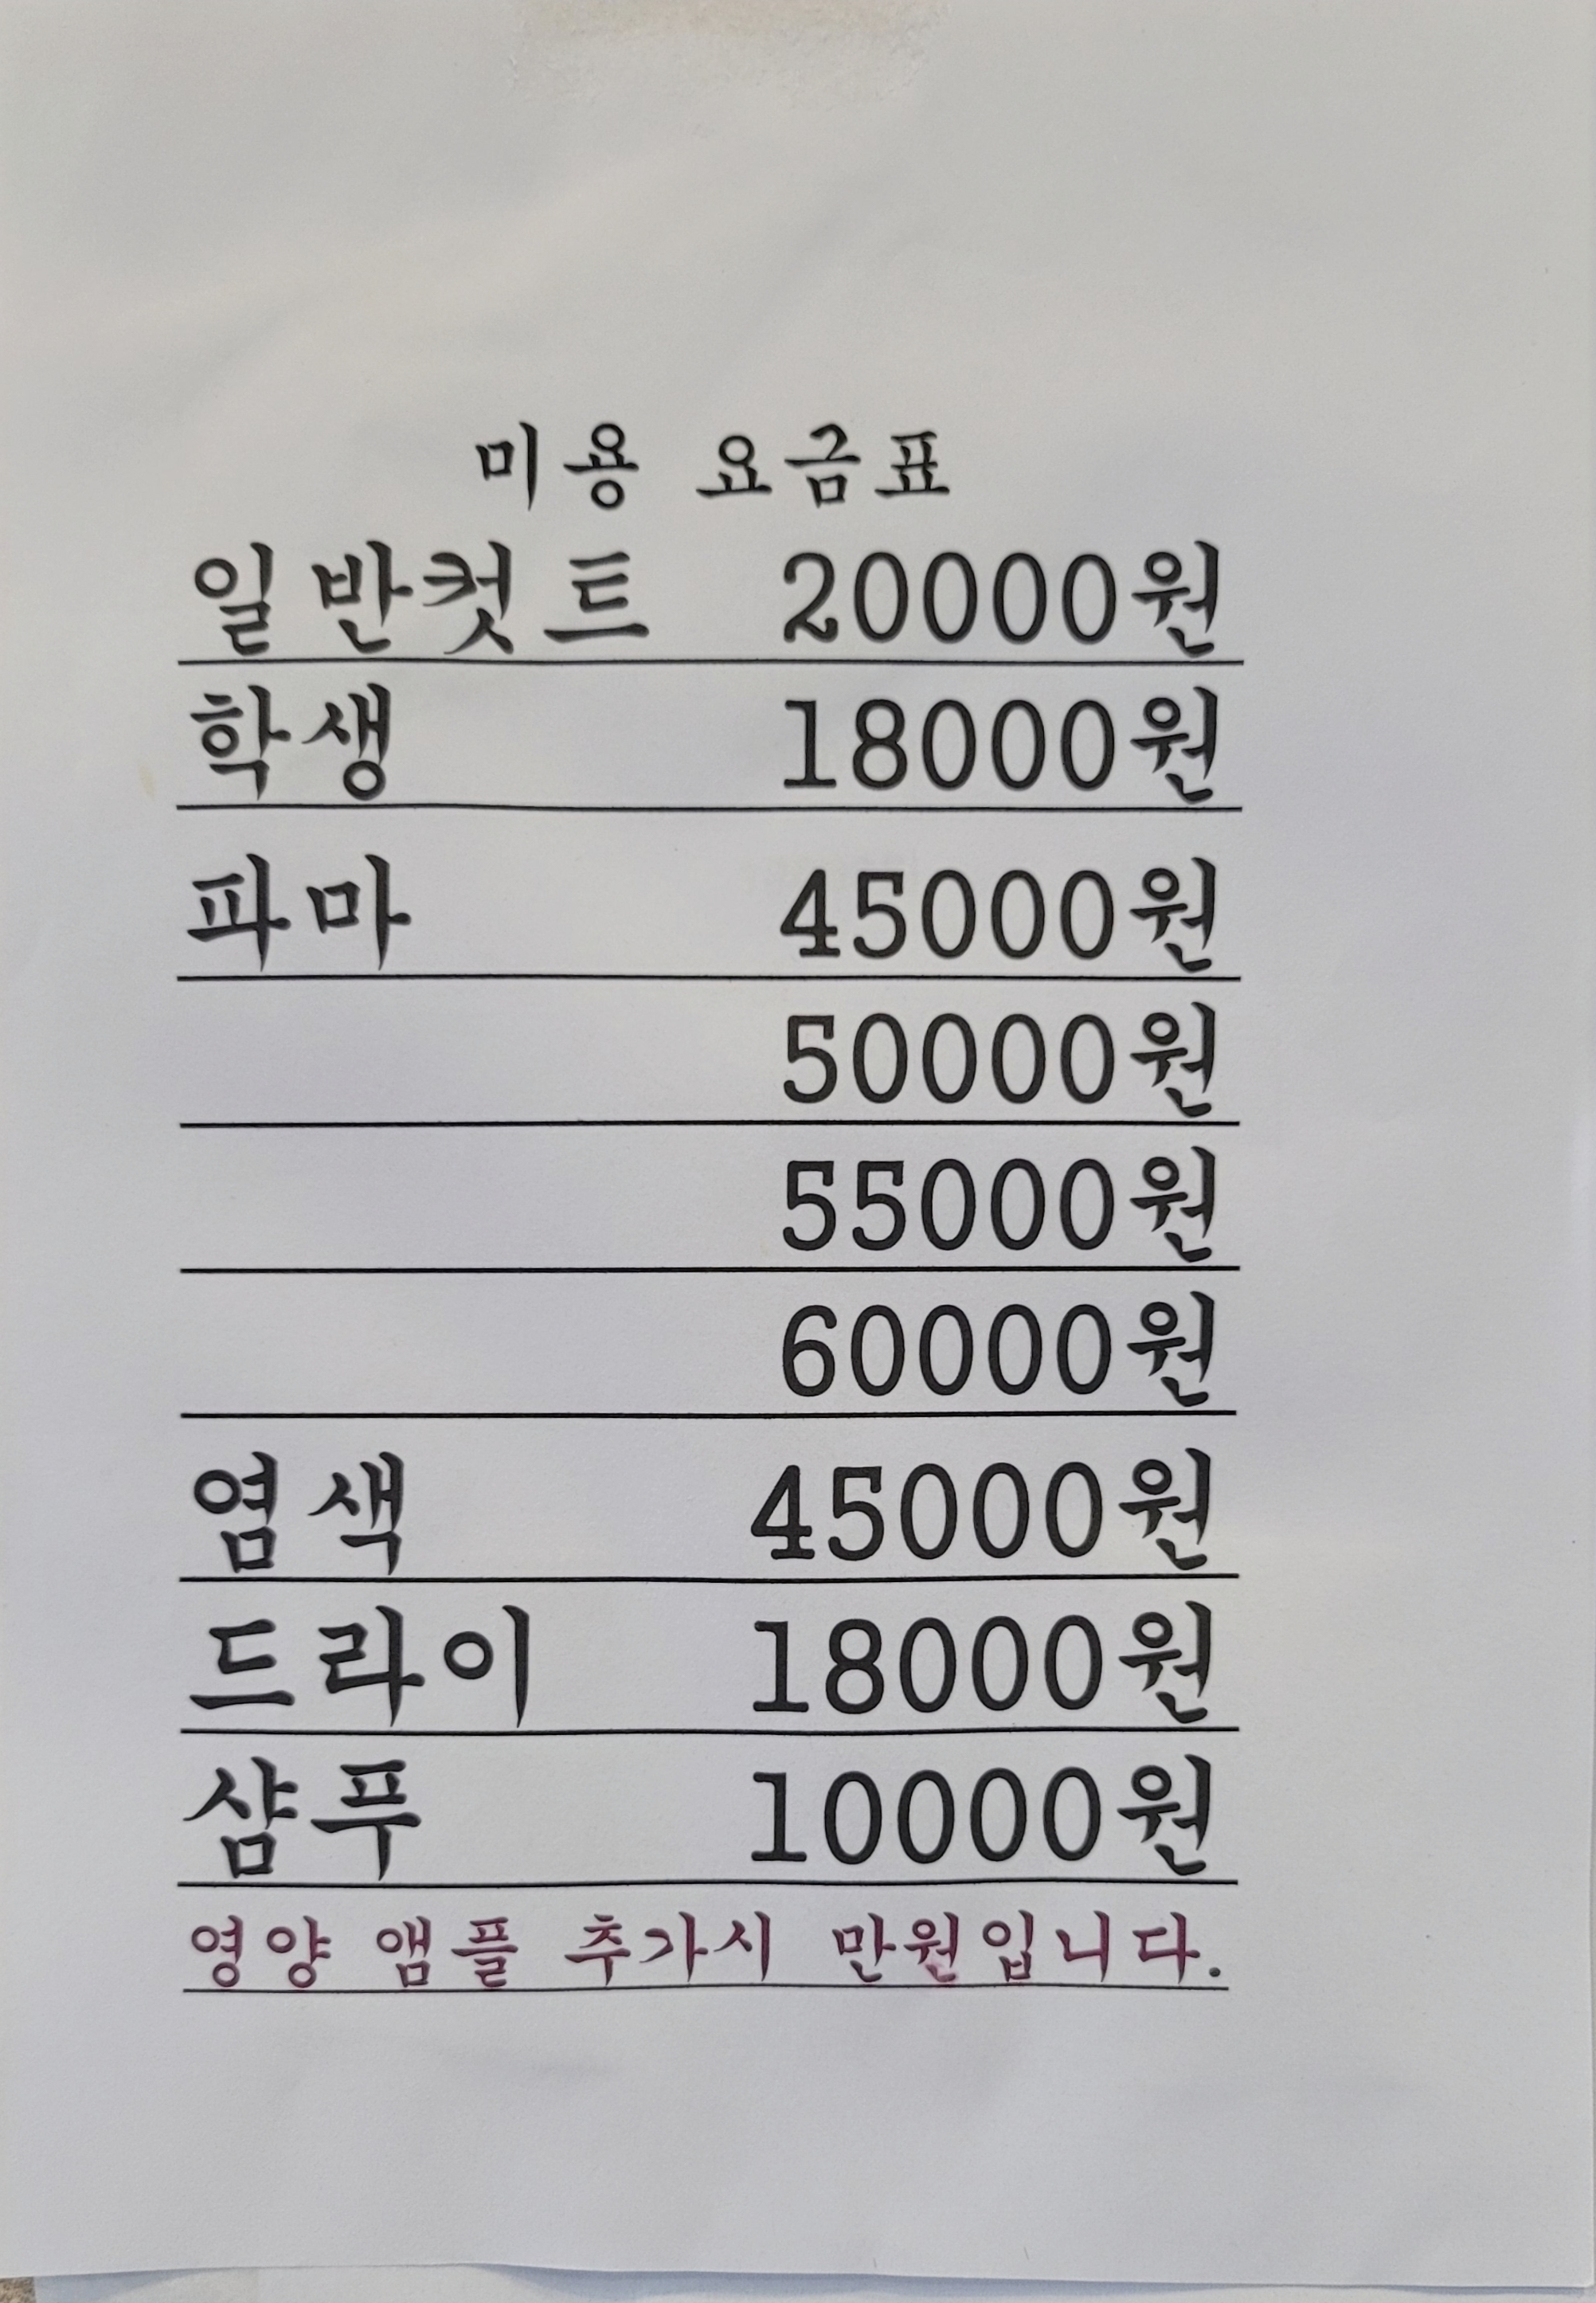 미용 요금표
일반컷트 20000원
학생 18000원
파마 45000원
50000원
55000원
60000원
염색 45000원
드라이 18000원
샴푸 10000원
영양 앰플 추가시 만원입니다.